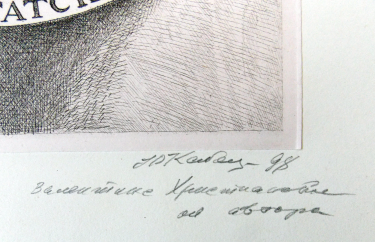 АТСК
Ю Кабаз - 98
Валентине Христиановне
от автора